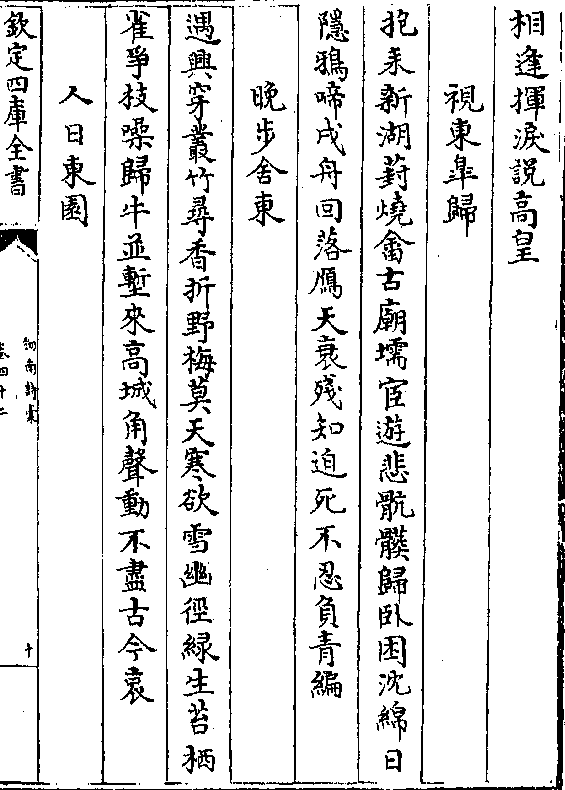 相逢揮淚說高皇
視東皐歸
抱耒新湖葑燒畬古廟壖宦遊悲骯髒歸卧困沈綿日
隱鴉啼戍舟回落鴈天衰殘知迫死不忍負青編
晚步舍東
遇興穿叢竹尋香折野梅莫天寒欲雪幽徑綠生苔栖
雀爭枝噪歸牛並塹來高城角聲動不盡古今哀
人日東園
欽定四庫全書
劍南詩稾
卷四十二
十